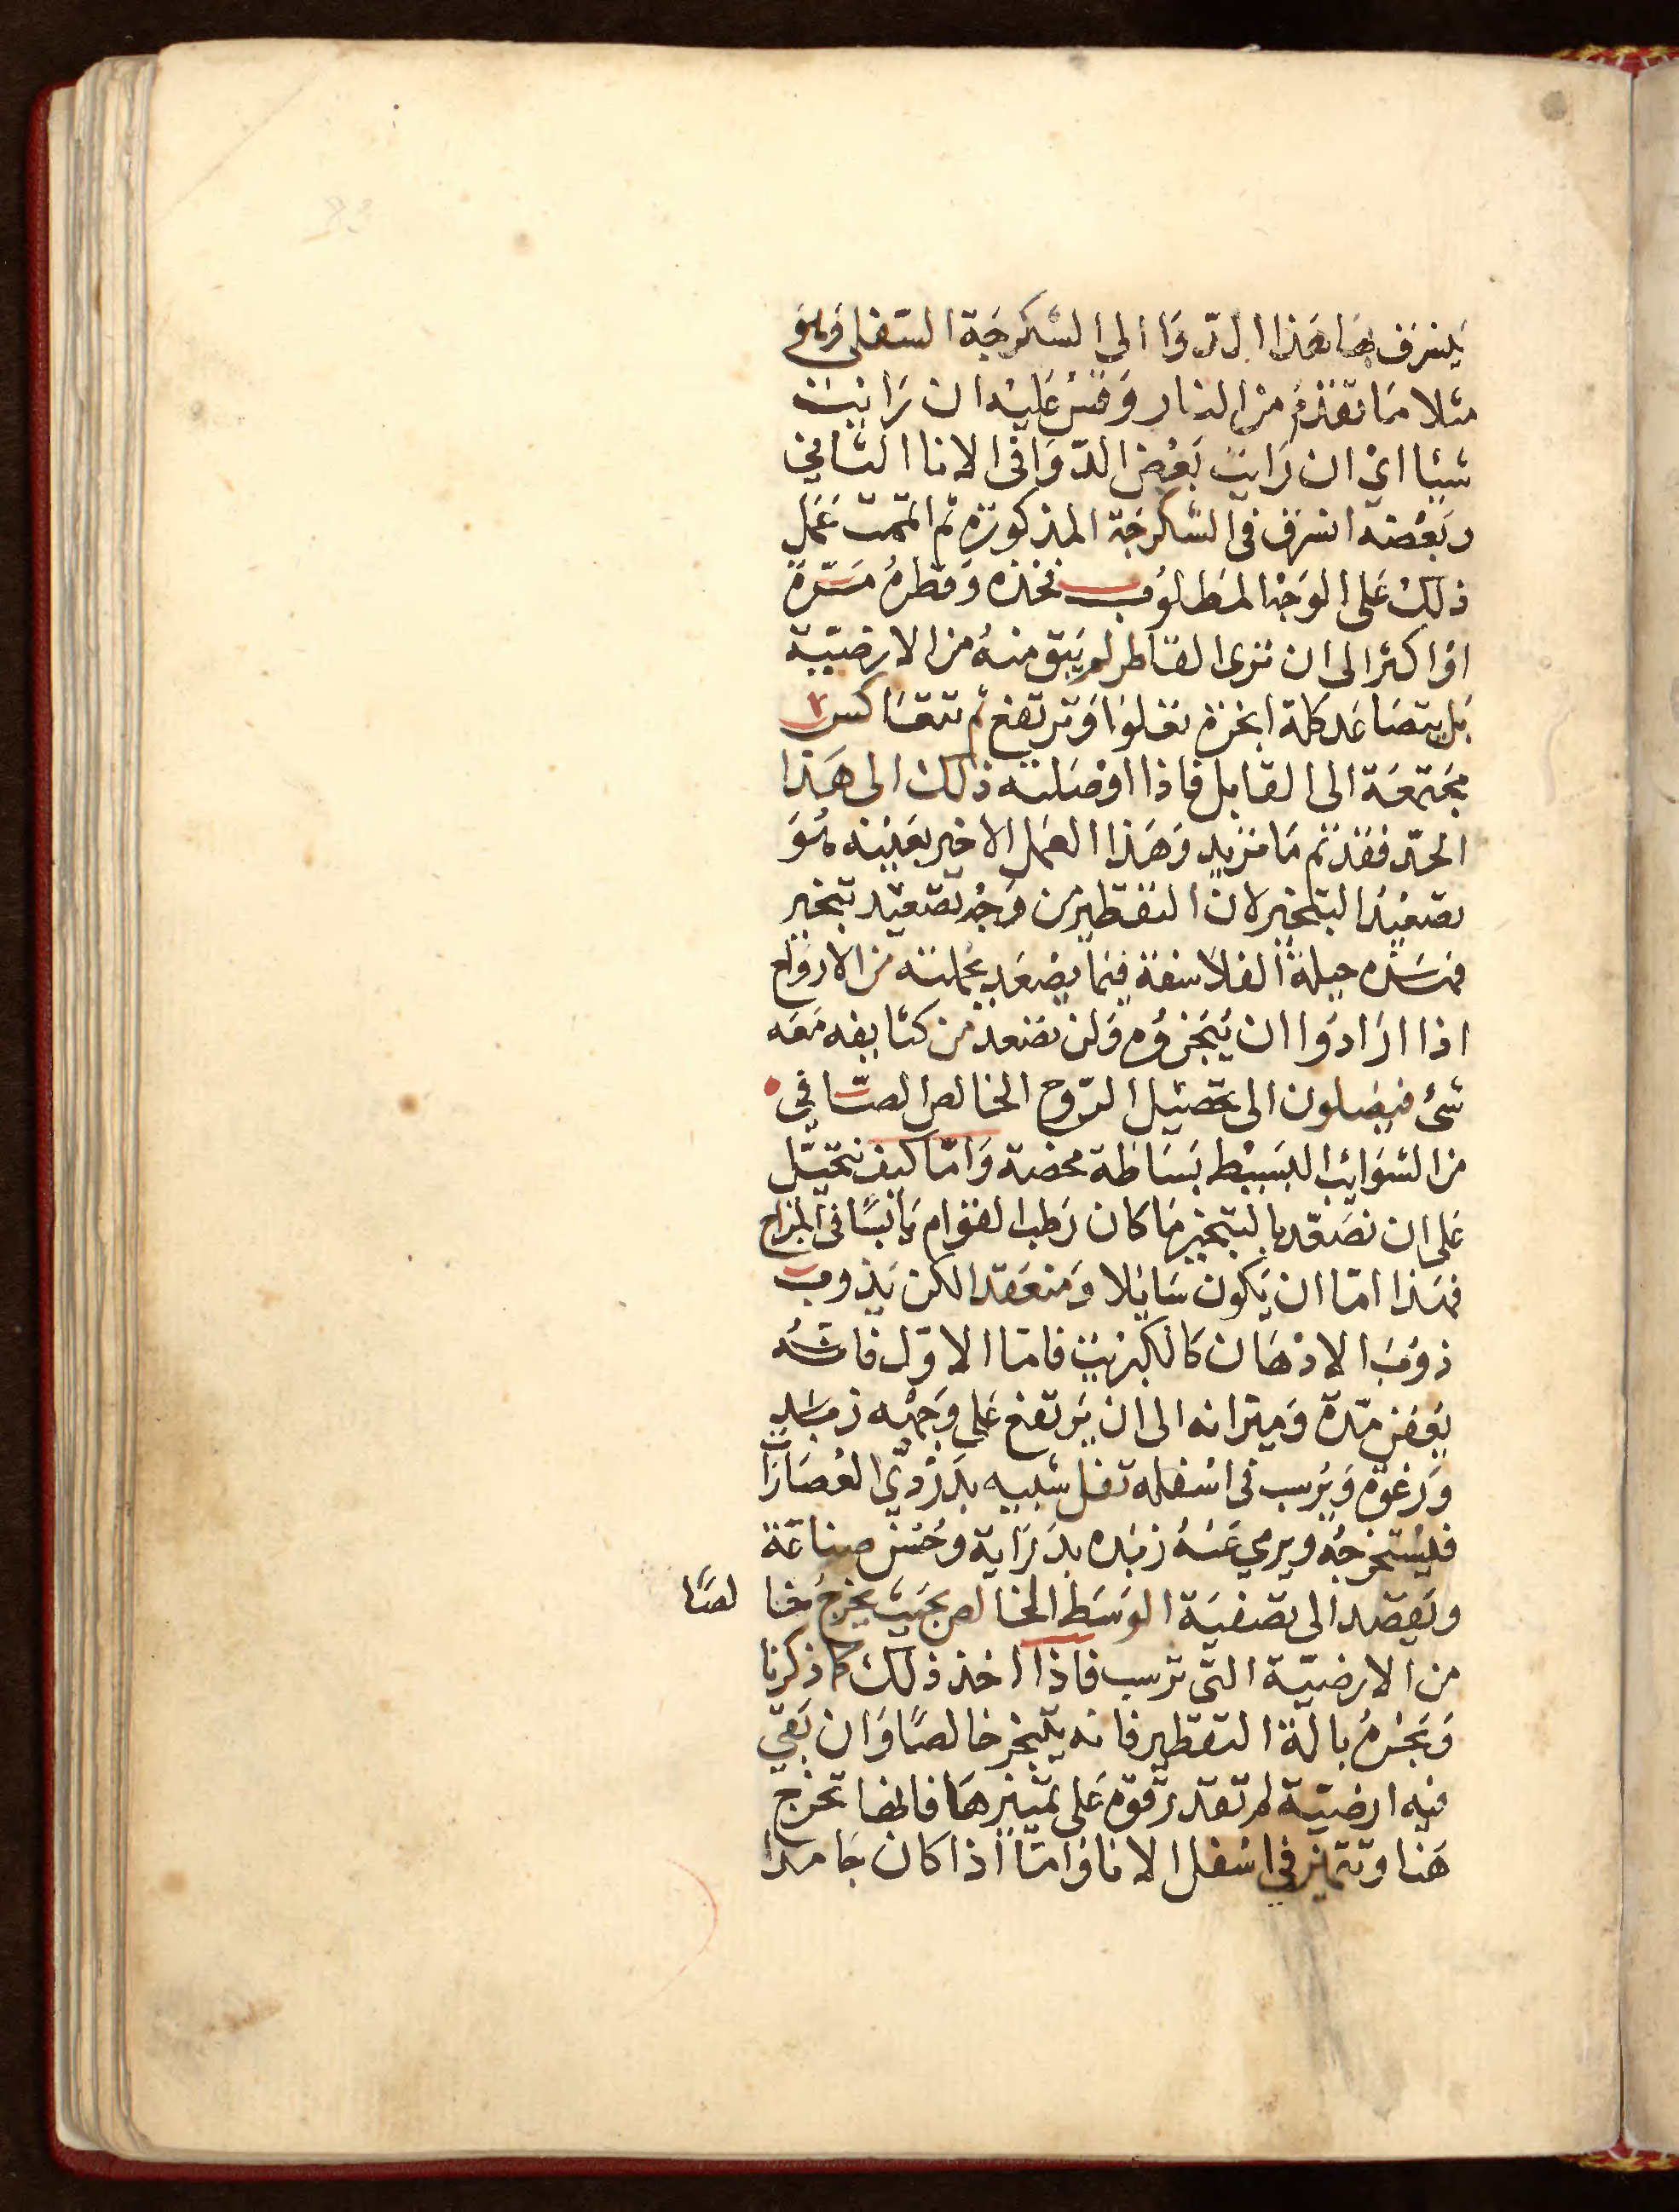 ينزف هنا هذا الدوا الى السكرجة السفلى وهو
مثلا ما تقدم من النار وقس عليه ان رايت
شيئا اي ان رايت بعض الدوا في الانا الثاني
وبعضه انزف في السكرجة المذكورة ثم اتممت عمل
ذلك على الوجه المطلوب فخذه وقطره مرة
او اكثر الى ان ترى القاطر لم يبق منه من الارضية
بل يتصاعد كله ابخرة تعلوا وترتفع ثم تتعاكس
مجتمعة الى القابل فاذا اوصلته ذلك الى هذا
الحد فقد تم ما تريد وهذا العمل الاخير بعينه هو
تصعيد التبخير لان التقطير من وجه تصعيد تبخير
فهذه حيلة الفلاسفة فيما يصعد بجملته من الارواح
اذا ارادوا ان يبخروه ولن تصعد من كثايفه معه
شئ فيصلون الى تحصيل الروح الخالص الصافي
من الشوايب البسيط بساطة محضة واما كيف نتحيل
على ان نصعد بالتبخير ما كان رطب القوام يابسا في المزاج
فهذا اما ان يكون سايلا ومنعقدا لكن يذوب
ذوب الادهان كالكبريت فاما الاول فانه
يعفن مدة وميزانه الى ان يرتفع على وجهه زبد
ورغوة ويرسب في اسفله تفل شبيه بدردي العصارات
فليستخرجه ويرمي عنه زبده بدراية وحسن صناعة
ويقصد الى تصفية الوسط الخالص بحيث يخرج خا لصا
من الارضية التي ترسب فاذا اخذ ذلك كما ذكرنا
وبخره بالة التقطير فانه يتبخر خالصا وان بقي
فيه ارضية لم تقدر قوة على تمييزها فانها تخرج
هنا وتتميز في اسفل الانا واما اذا كان جامدا